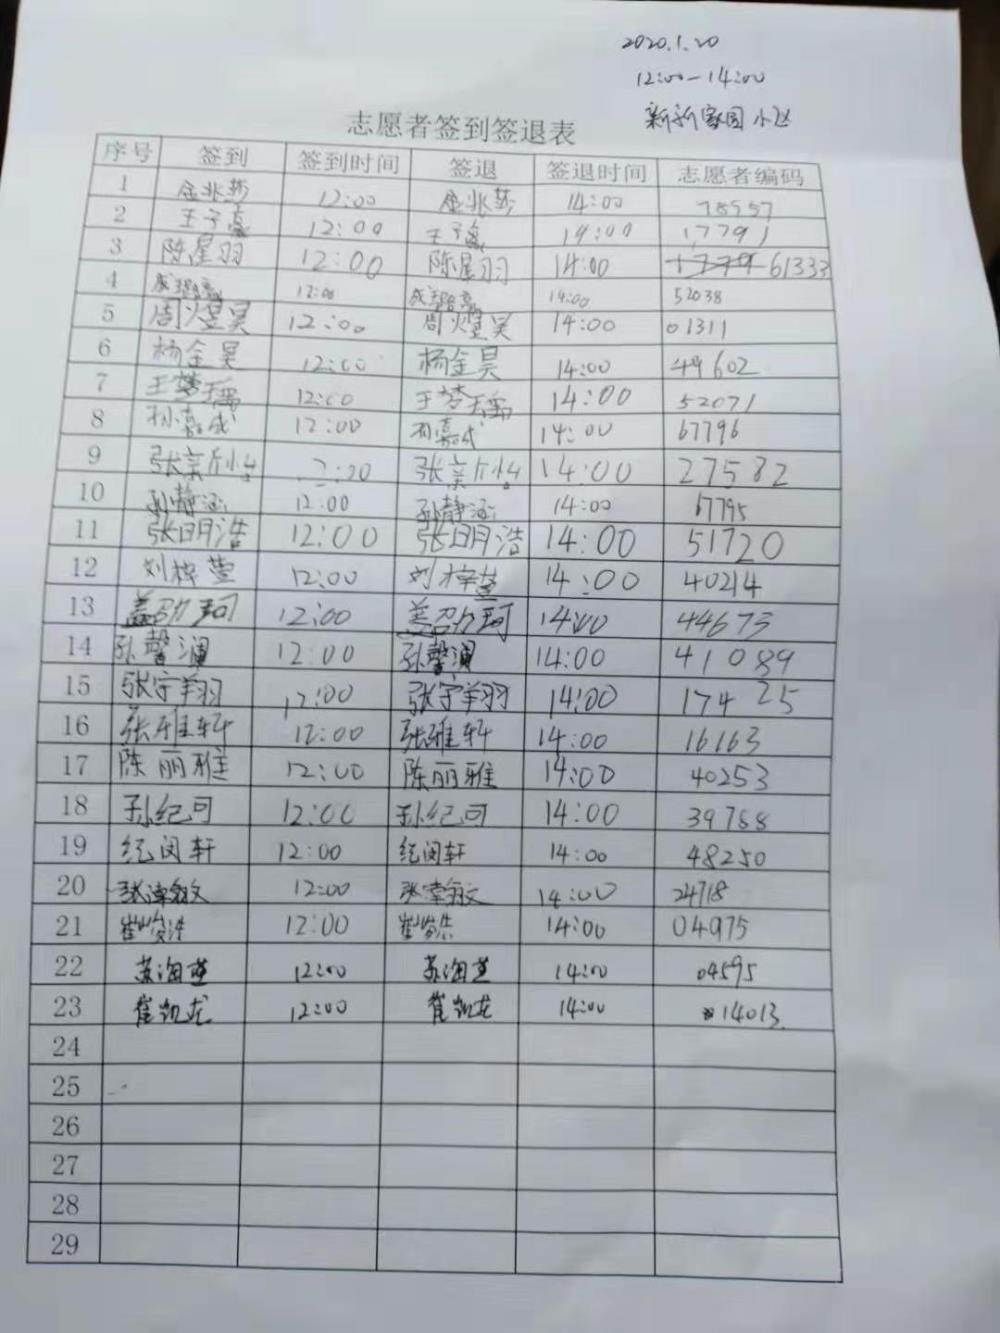 2020.1.20
12:00—14:00
新新家园小区
志愿者签到签退表
序号 签到 签到时间 签退 签退时间 志愿者编码
1 12:00 14:00 78557
2 王子嘉 12:00 王子嘉 14:00 17791
3 陈星羽 12:00 陈星羽 14:00 61333
4 12:00 14:00 52038
5 周煜昊 12:00 周煜昊 14:00 01311
6 杨金昊 12:00 杨金昊 14:00 49602
7 王梦瑶 12:00 王梦瑶 14:00 52071
8 孙嘉成 12:00 孙嘉成 14:00 67796
9 14:00 27582
10 孙静涵 12:00 孙静涵 14:00 67795
11 张明浩 12:00 张明浩 14:00 51720
12 刘梓萱 12:00 刘梓萱 14:00 40214
13 12:00 14:00 44673
14 孙馨澜 12:00 孙馨澜 14:00 41089
15 张宇翔 12:00 张宇翔 14:00 17425
16 张雅轩 12:00 张雅轩 14:00 16163
17 陈丽雅 12:00 陈丽雅 14:00 40253
18 孙纪可 12:00 孙纪可 14:00 39788
19 纪闵轩 12:00 纪闵轩 14:00 48250
20 12:00 14:00 24718
21 12:00 14:00 04975
22 苏海萱 12:00 苏海萱 14:00 04595
23 崔凯龙 12:00 崔凯龙 14:00 14013
24
25
26
27
28
29